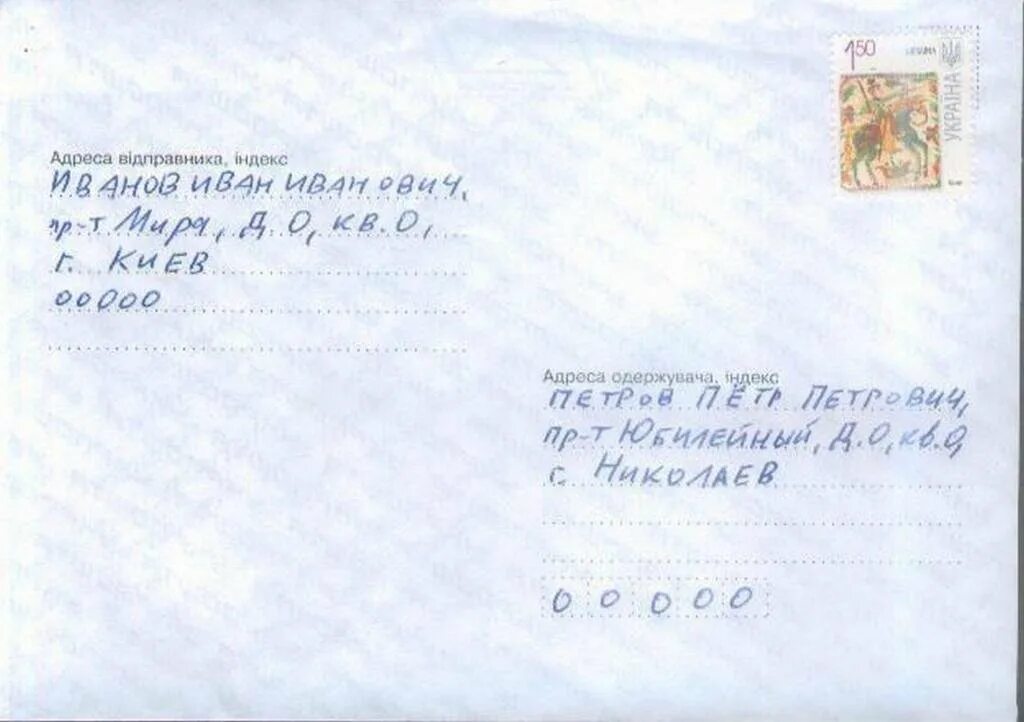 1.50
УКРАЇНА
Адреса відправника, індекс
ИВАНОВ ИВАН ИВАНОВИЧ,
пр-т Мира, Д.О, кв.О,
г. КИЕВ
00000
Адреса одержувача, індекс
ПЕТРОВ ПЁТР ПЕТРОВИЧ,
пр-т ЮБИЛЕЙНЫЙ, Д.О, кв.О,
г. НИКОЛАЕВ
0 0 0 0 0